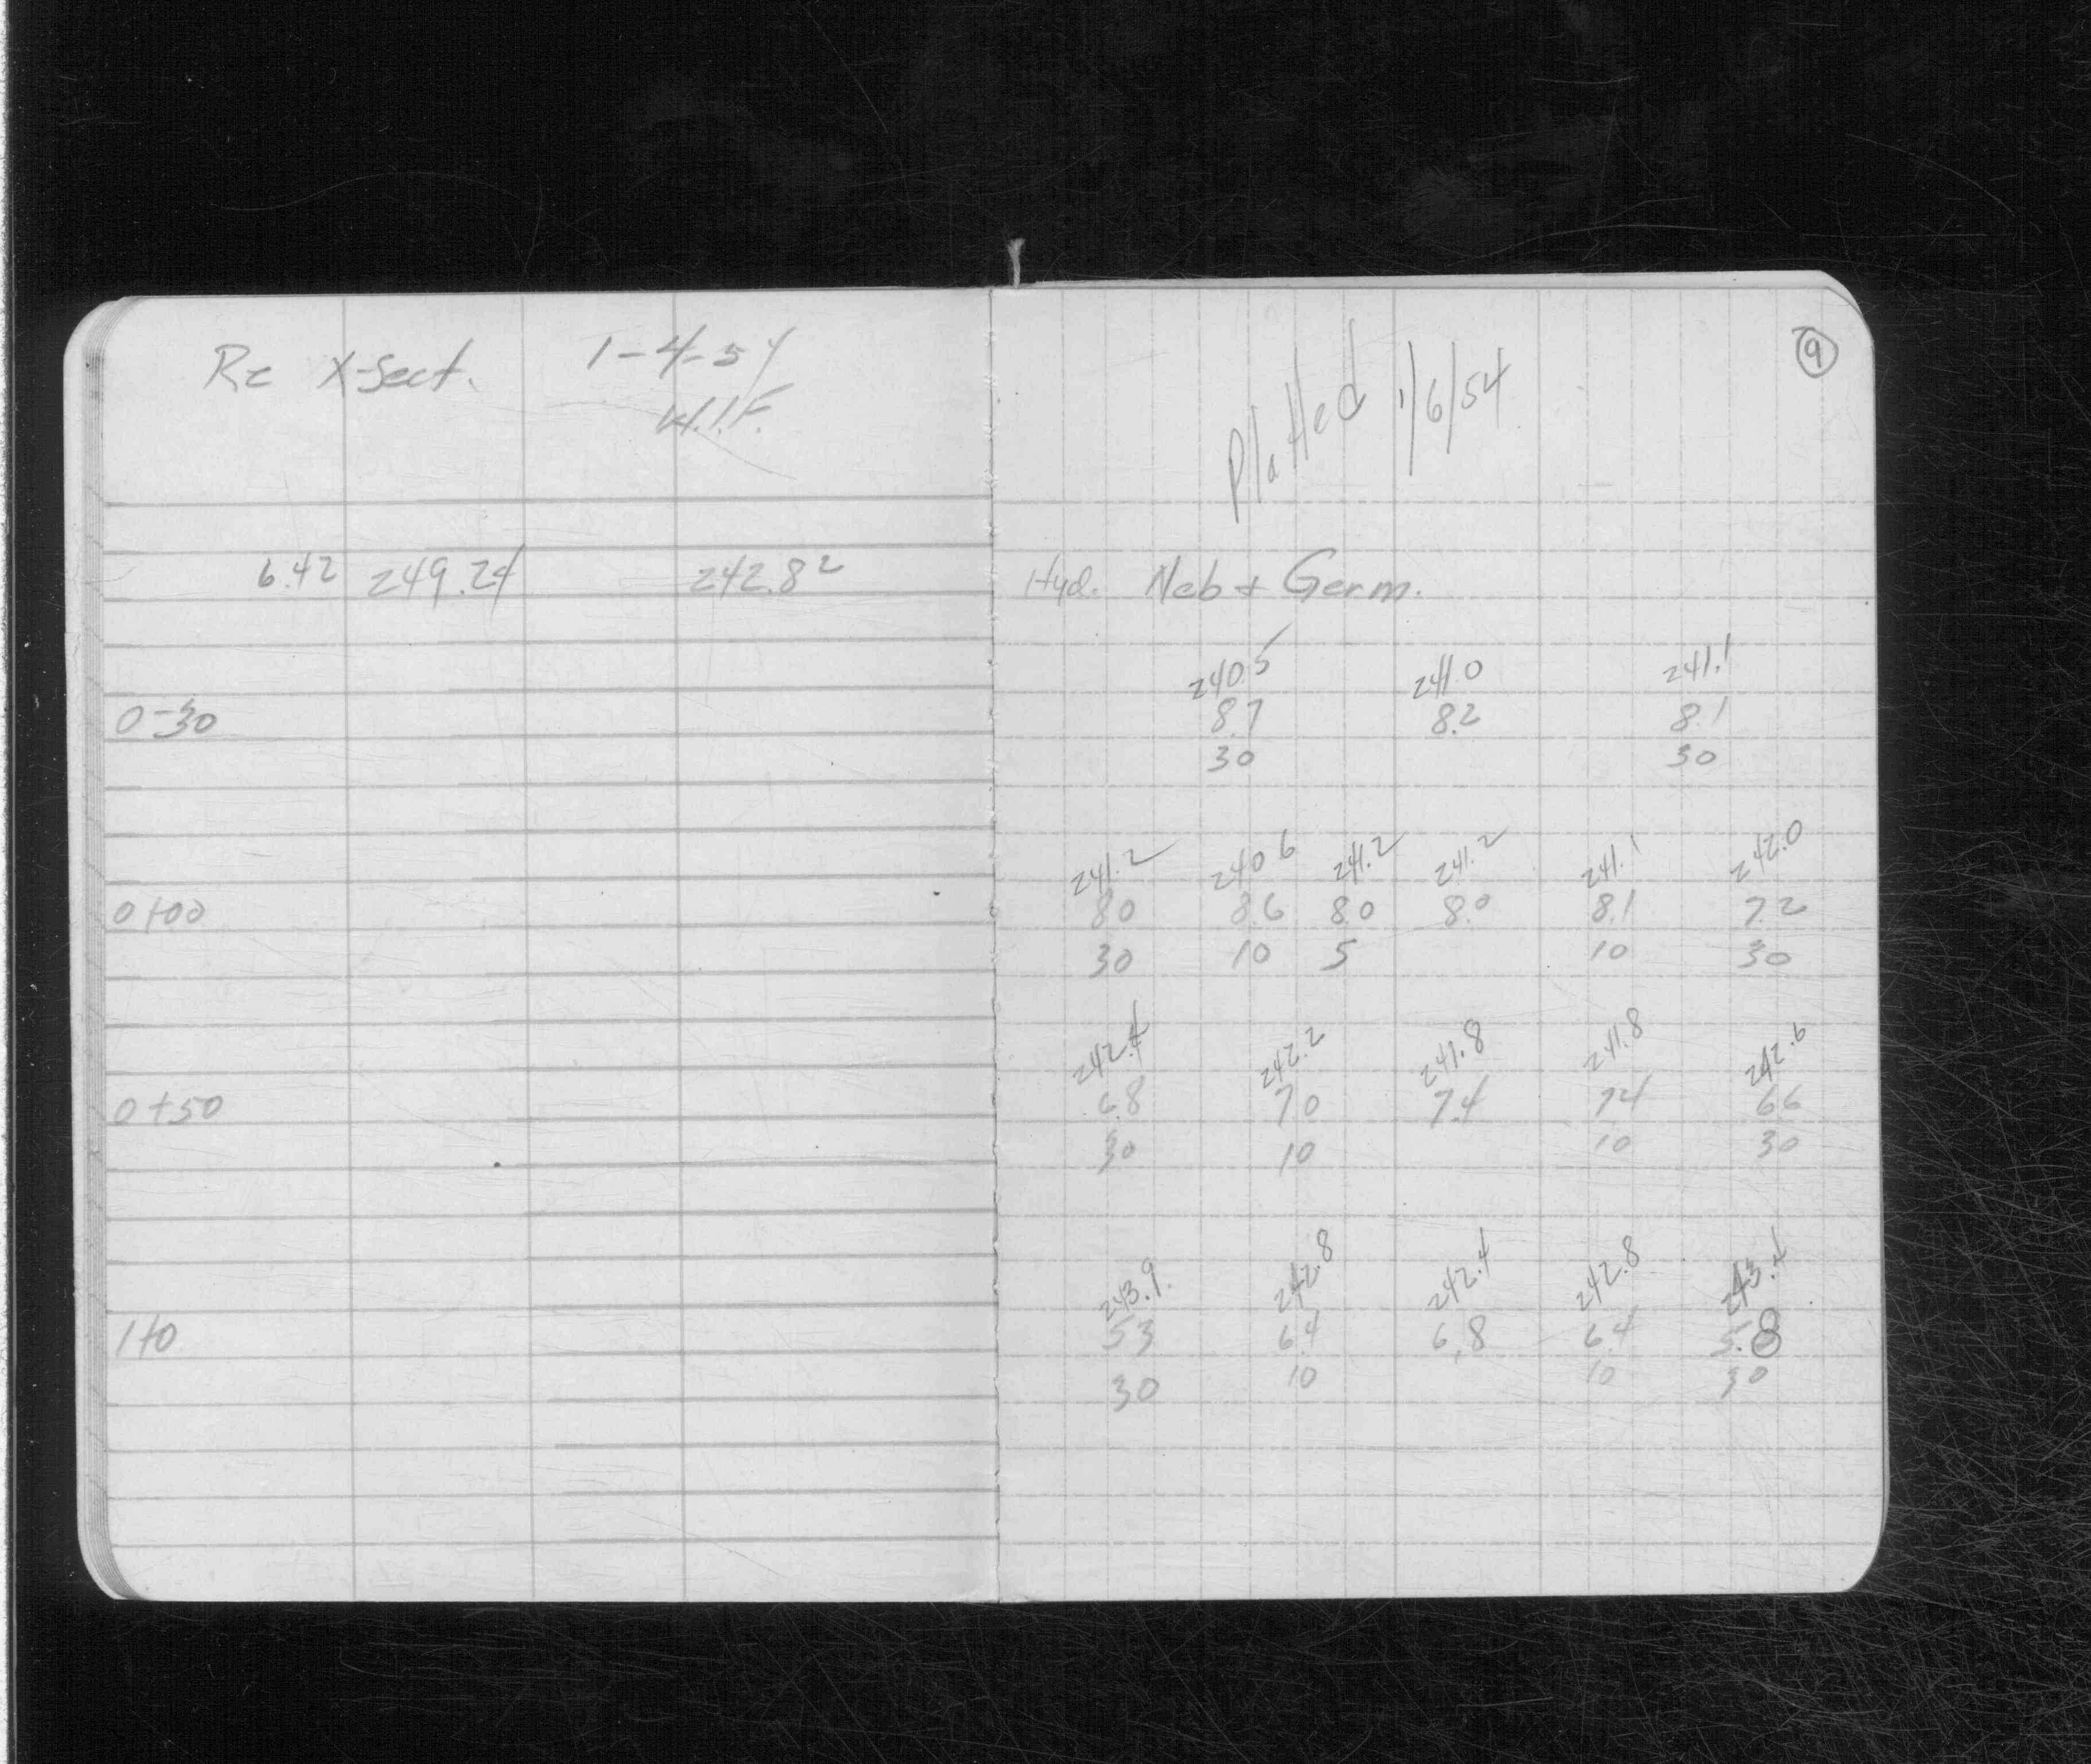 Re X-Sect. 1-4-54
W.I.F.
6.42 249.24 242.82
0-30
0+00
0+50
1+0
9
Platted 1/6/54
Hyd. Neb + Germ.
240.5 241.0 241.1
8.7 8.2 8.1
30 30
241.2 240.6 241.2 241.2 241.1 242.0
8.0 8.6 8.0 8.0 8.1 7.2
30 10 5 10 30
242.4 242.2 241.8 241.8 242.6
6.8 7.0 7.4 7.4 6.6
30 10 10 30
243.9 242.8 242.4 242.8 243.4
5.3 6.4 6.8 6.4 5.8
30 10 10 30